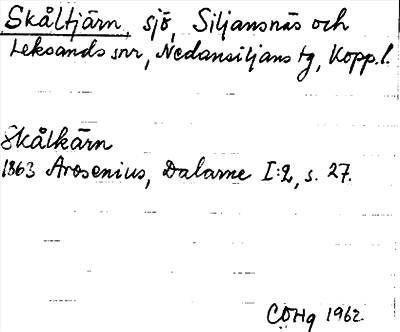 Skåltjärn, sjö, Siljansnäs och
Leksands snr, Nedansiljans tg, Kopp.l.
Skålkärn
1863 Arosenius, Dalarne I:2, s. 27.
CÖHg 1962